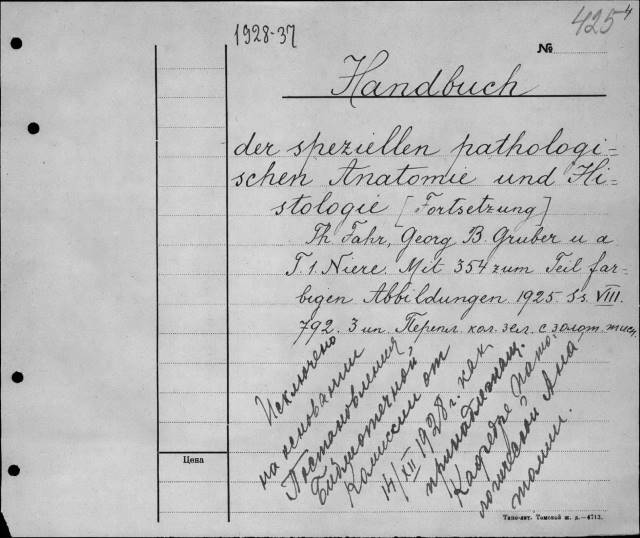 425⁴
1928-37
№
Handbuch
der speziellen pathologi=
schen Anatomie und Hi=
stologie [Fortsetzung]
Th. Fahr, Georg B. Gruber u. a
T. 1. Niere. Mit 354 zum Teil far=
bigen Abbildungen. 1925. Ss. VIII.
792. 3 ип. Перепл. кол. зел. с золот. тисн.
Исключено
на основании
Постановления
Библиотечной
Комиссии от
14/XII 1928 г. как
принадлежащ.
Кафедре Пато-
логической Ана
томии.
Цена
Типо-лит. Томской ж. д.—4713.